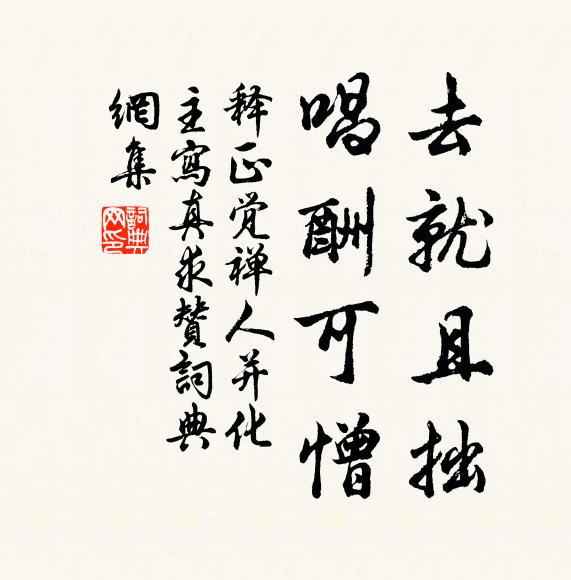 去就且拙
唱酬可憎
释正觉禅人并化
主寫真求贊詞典
網集
詞典網印